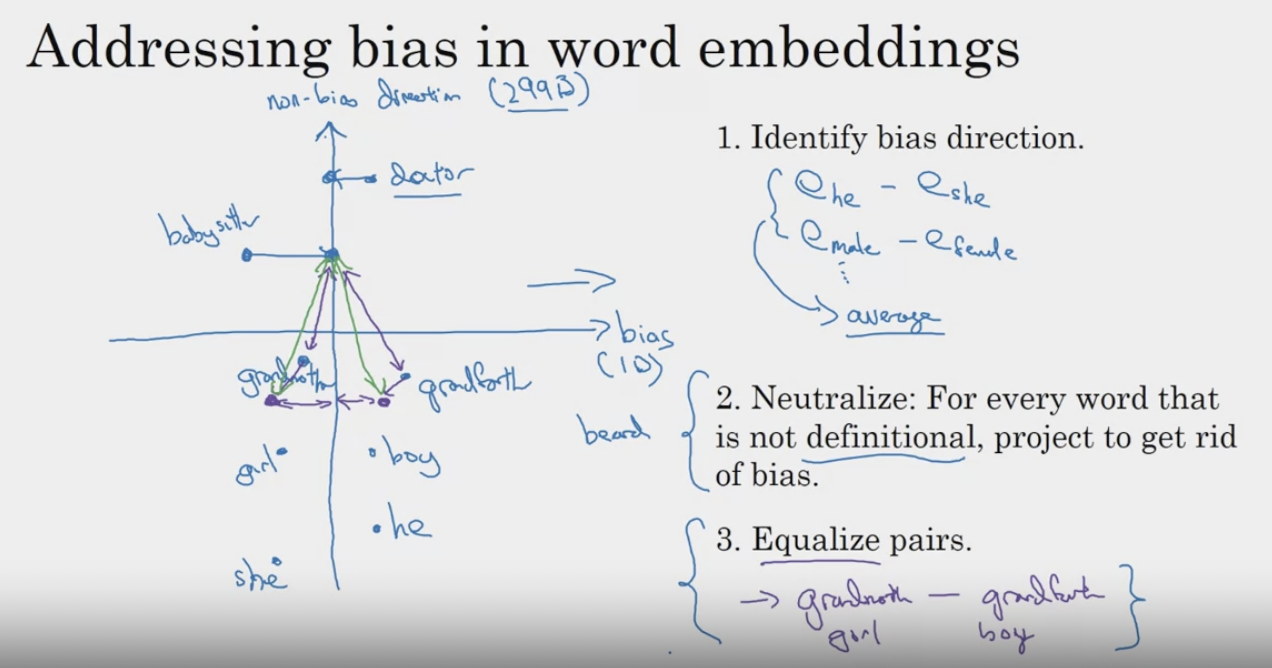 Addressing bias in word embeddings
non-bias direction (299D)
doctor
babysitter
bias
(1D)
grandmoth
grandfarth
girl
boy
he
she
beard
1. Identify bias direction.
e he - e she
e male - e female
⋮
average
2. Neutralize: For every word that
is not definitional, project to get rid
of bias.
3. Equalize pairs.
→ grandmoth — grandfarth
girl boy